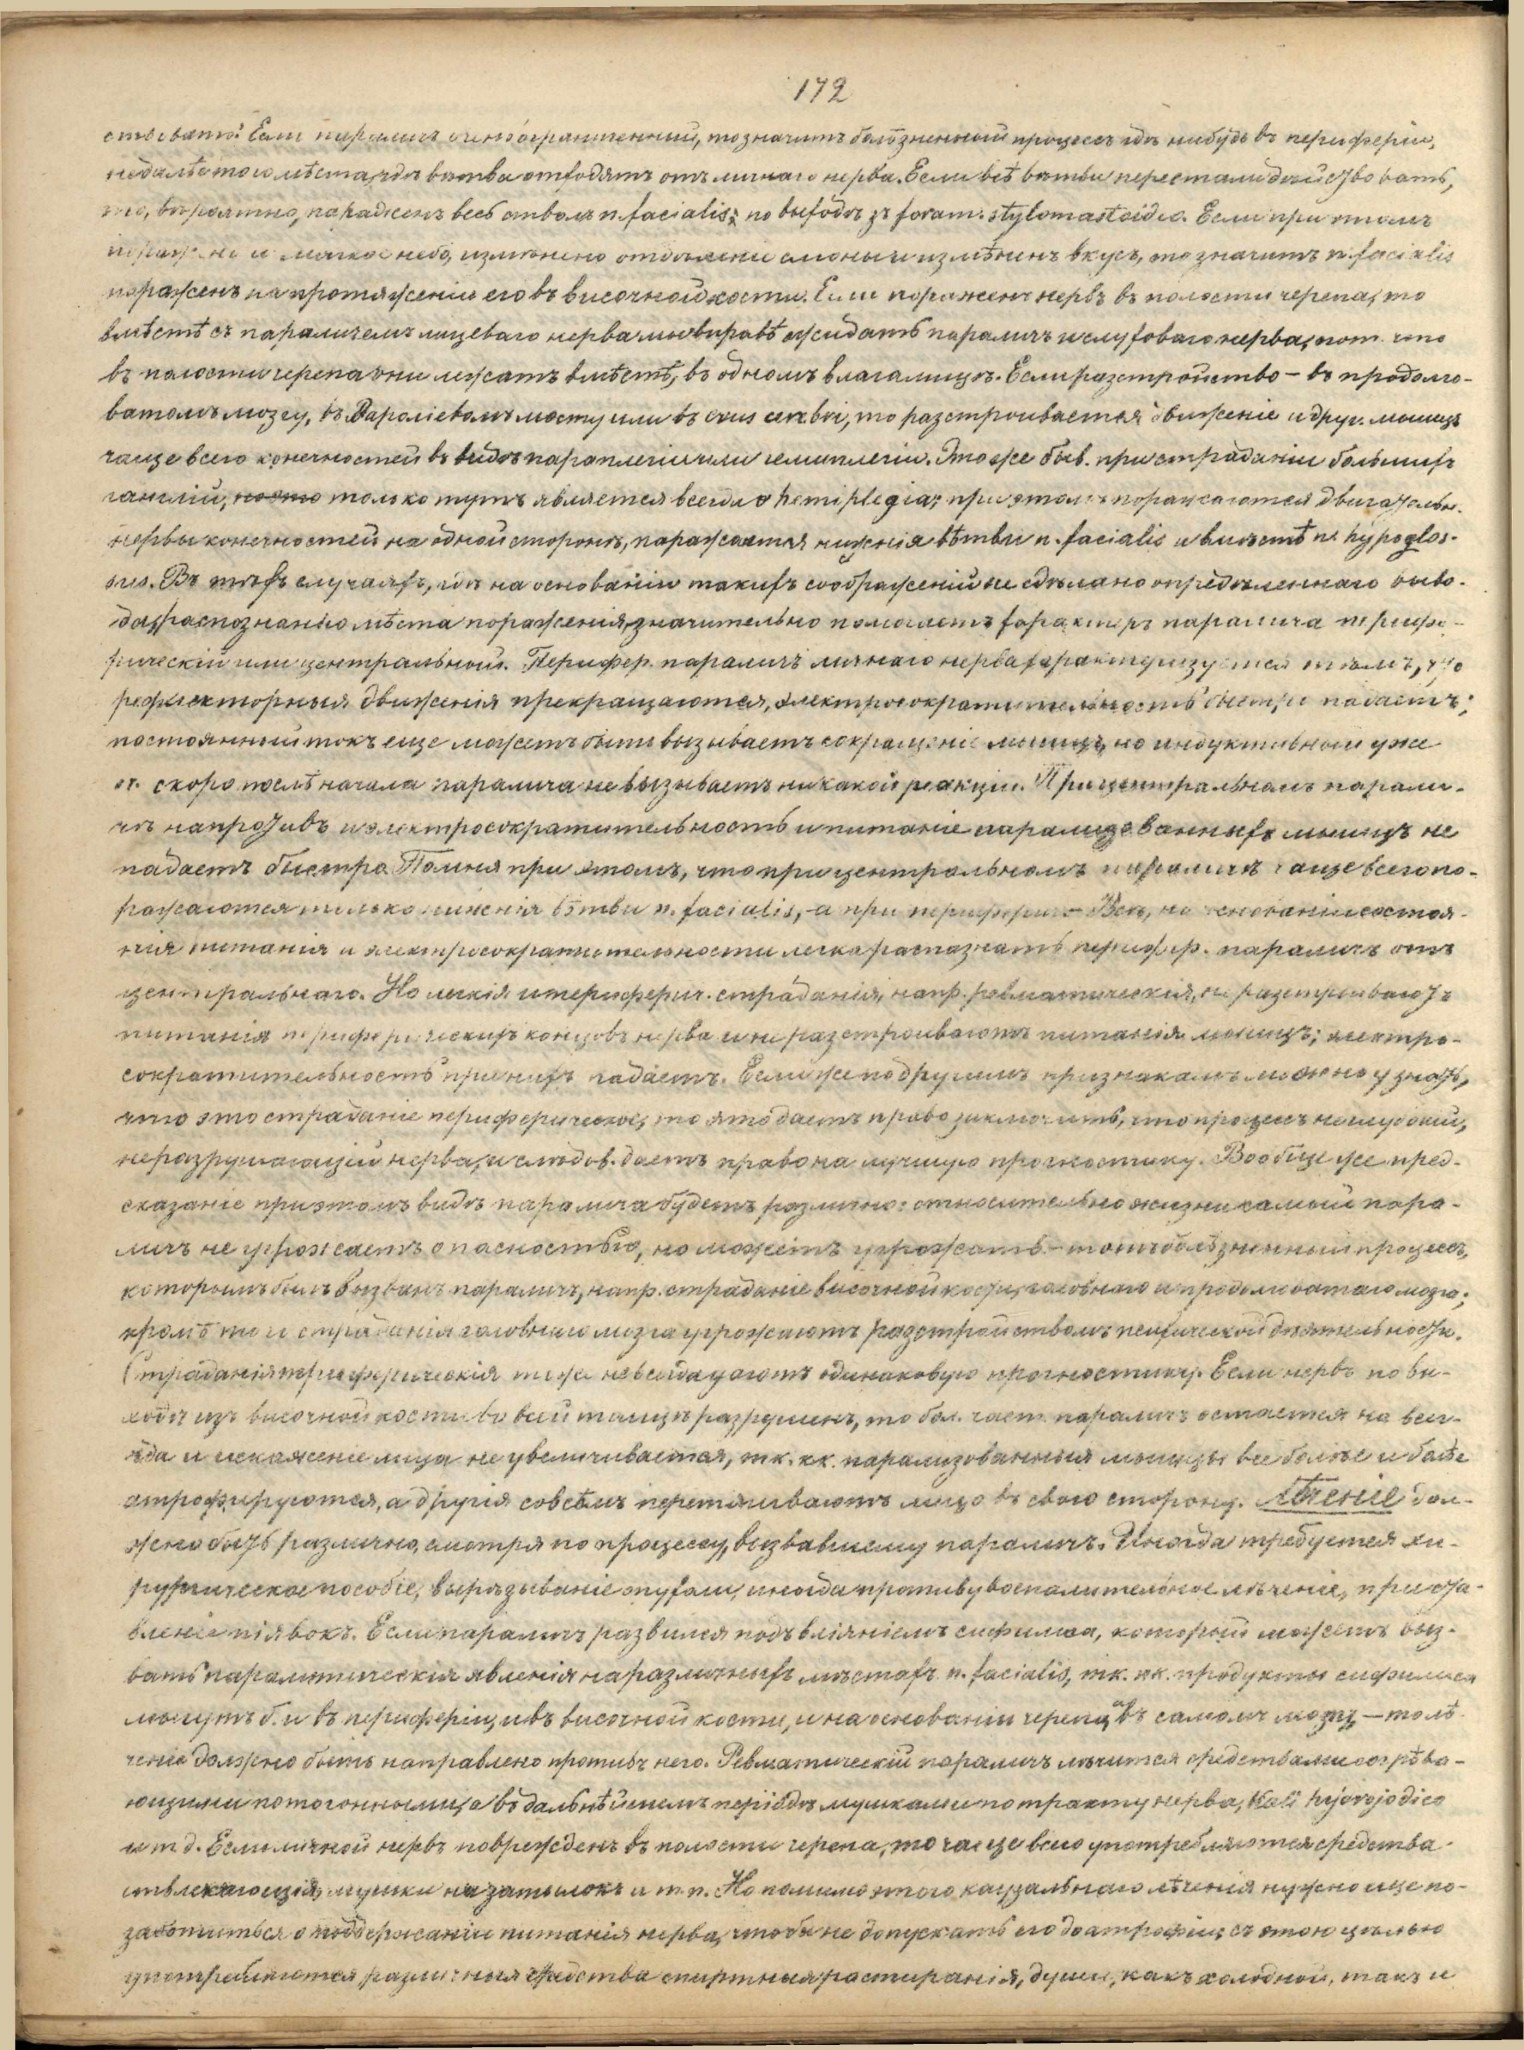 172
ствовать. Если параличъ очень ограниченный, то значитъ болѣзненный процессъ гдѣ нибудь въ периферіи,
недалеко того мѣста, гдѣ вѣтви отходятъ отъ личнаго нерва. Если всѣ вѣтви перестали дѣйствовать,
то, вѣроятно, пораженъ весь стволъ n. facialis; по выходѣ зъ foram. stylomastoideo. Если при этомъ
поражено и мягкое небо, измѣнено отдѣленіе слюны и измѣненъ вкусъ, то значитъ n. facialis
пораженъ на протяженіи его въ височной кости. Если пораженъ нервъ въ полости черепа, то
вмѣстѣ съ параличемъ лицеваго нерва мы вправѣ ожидать параличъ и слуховаго нерва, пот. что
въ полости черепа они лежатъ вмѣстѣ, въ одномъ влагалищѣ. Если разстройство — въ продолго-
ватомъ мозгу, въ Вароліевомъ мосту или въ crus cerebri, то разстроивается движеніе и друг. мышцъ
чаще всего конечностей въ видѣ параплегіи или гемиплегіи. Это же быв. при страданіи большихъ
ганглій, только тутъ является всегда hemiplegia; при этомъ поражаются двигательн.
нервы конечностей на одной сторонѣ, поражаются нижнія вѣтви n. facialis и вмѣстѣ n. hypoglos-
sus. Въ тѣхъ случаяхъ, гдѣ на основаніи такихъ соображеній не сдѣлано опредѣленнаго выво-
да, распознанію мѣста пораженія значительно помогаетъ характеръ паралича перифе-
рическій или центральный. Перифер. параличъ личнаго нерва характеризуется тѣмъ, что
рефлекторныя движенія прекращаются, электросократительность быстро падаетъ;
постоянный токъ еще можетъ быть вызываетъ сокращеніе мышцъ, но индуктивный уже
оч. скоро послѣ начала паралича не вызываетъ никакой реакціи. При центральномъ парали-
чѣ напротивъ и электросократительность и питаніе парализованныхъ мышцъ не
падаетъ быстро. Помня при этомъ, что при центральномъ параличѣ чаще всего по-
ражаются только нижнія вѣтви n. facialis, а при периферич. — Всѣ, на основаніи состоя-
нія питанія и электросократительности легко распознать перифер. параличъ отъ
центральнаго. Но легкія и периферич. страданія, напр. ревматическія, не разстраиваютъ
питанія периферическихъ концовъ нерва и не разстроиваютъ питанія мышцъ; электро-
сократительность при нихъ падаетъ. Если же по другимъ признакамъ можно узнать,
что это страданіе периферическое, то это даетъ право заключить, что процессъ неглубокій,
неразрушающій нерва, и слѣдов. даетъ право на лучшую прогностику. Вообще же пред-
сказаніе при этомъ видѣ паралича будетъ различно: относительно жизни самый пара-
личъ не угрожаетъ опасностью, но можетъ угрожать — тотъ болѣзненный процессъ,
которымъ былъ вызванъ параличъ, напр. страданіе височной кости, головнаго и продолговатаго мозга;
кромѣ того страданія головнаго мозга угрожаютъ разстройствомъ психической дѣятельности.
Страданія периферическія тоже не всегда даютъ одинаковую прогностику. Если нервъ по вы-
ходѣ изъ височной кости во всей толщѣ разрушенъ, то бол. част. параличъ остается на всег-
да и искаженіе лица не увеличивается, тк. кк. парализованныя мышцы все болѣе и болѣе
атрофируются, а другія совсѣмъ перетягиваютъ лицо въ свою сторону. Лѣченіе дол-
жно быть различно, смотря по процессу, вызвавшему параличъ. Иногда требуется хи-
рургическое пособіе, вырѣзываніе опухоли, иногда противувоспалительное лѣченіе, приста-
вленіе піявокъ. Если параличъ развился подъ вліяніемъ сифилиса, который можетъ выз-
вать паралитическія явленія на различныхъ мѣстахъ n. facialis, тк. кк. продукты сифилиса
могутъ б. и въ периферіи, и въ височной кости, и на основаніи черепа, и въ самомъ мозгу, — то лѣ-
ченіе должно быть направлено противъ него. Ревматическій параличъ лѣчится средствами согрѣва-
ющими потогонными, а въ дальнѣйшемъ періодѣ мушками по тракту нерва, Kali hydrojodico
и т д. Если личной нервъ поврежденъ въ полости черепа, то чаще всего употребляются средства
отвлекающія, мушки на затылокъ и т. п. Но помимо этого каузальнаго лѣченія нужно еще по-
заботиться о поддержаніи питанія нерва, чтобы не допускать его до атрофіи; съ этою цѣлью
употребляются различныя средства спиртныя растиранія, души, какъ холодной, такъ и